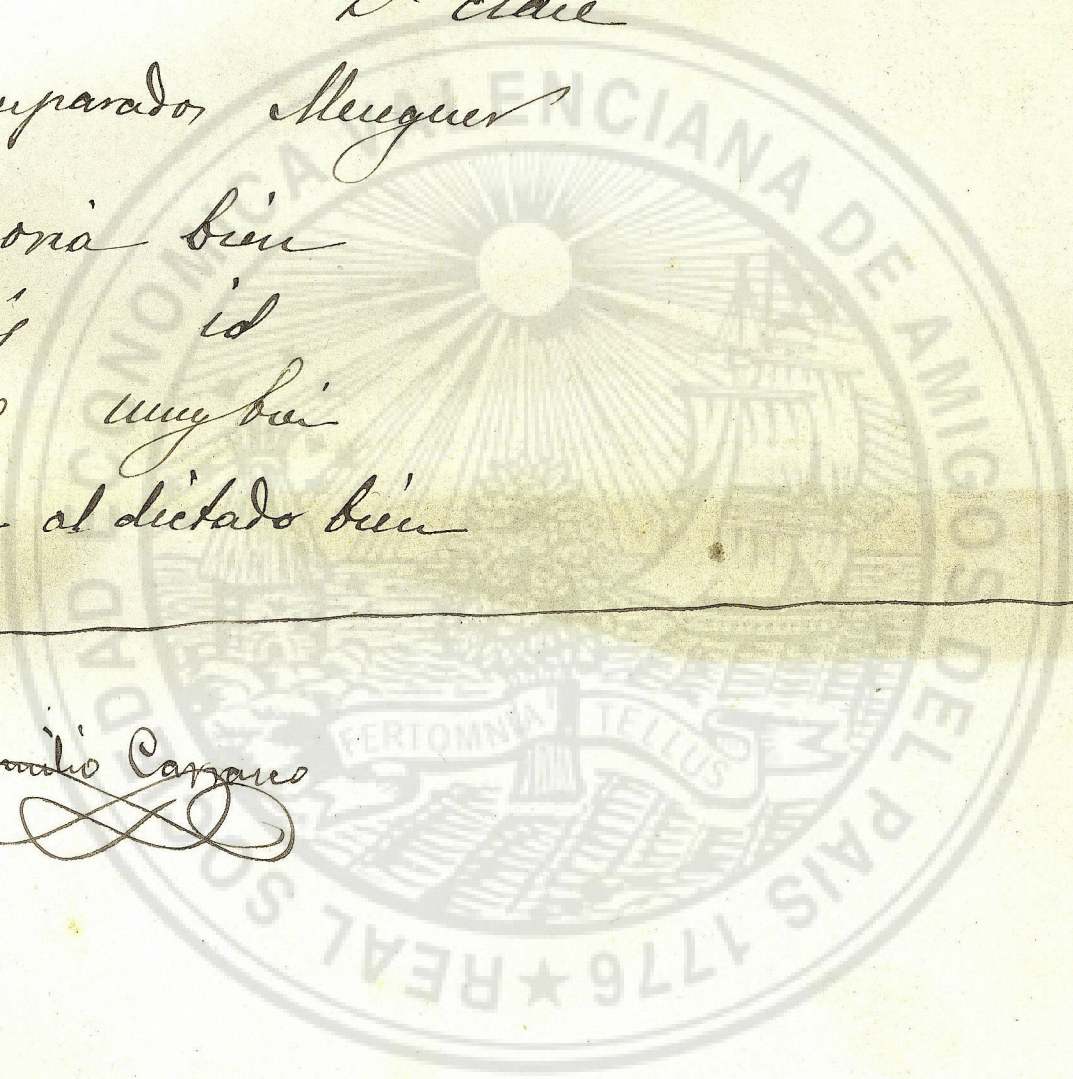 uparados Meseguer
oria bien
id
muy bien
al dictado bien
milio Carrasco
REAL SOCIEDAD ECONOMICA VALENCIANA DE AMIGOS DEL PAIS 1776 ★
FERTOMNIA TELLUS